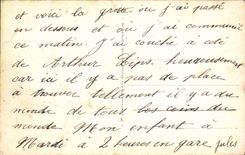 et voici la grotte ou j'ai passé
en dessous et ou j'ai communié
ce matin. J'ai couché à coté
de Arthur Cips. heureusement
car ici il y a pas de place
à trouver tellement il y a du
monde de tous les coins du
monde Mon enfant à
Mardi à 2 heures en gare Jules